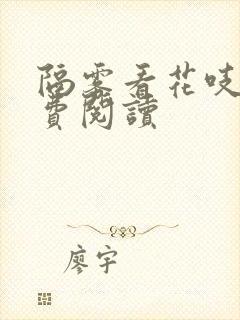 隔雾看花吱
费閱讀
廖宇